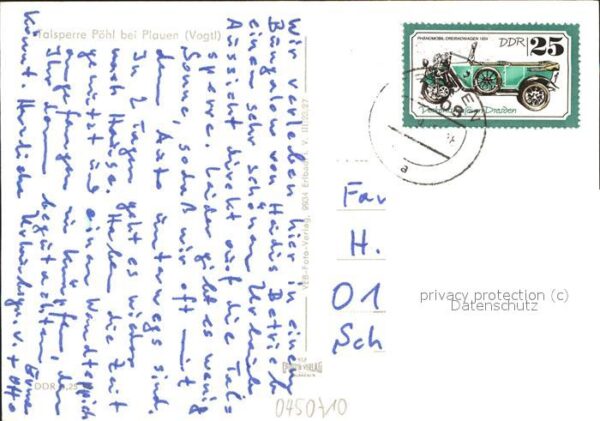 Talsperre Pöhl bei Plauen (Vogtl)
Wir verleben hier in einem
Bungalow von Hädis Betrieb
einen sehr schönen Urlaub
Aussicht direkt auf die Tals
sperre. Leider gibt es wenig
Sonne, sodaß wir oft mit
dem Auto unterwegs sind.
In 2 Tagen geht es wieder
nach Hause. Haben die Zeit
genützt und einen Wandteppich
angefangen zu knüpfen, den
Ihr dann begutachten
könnt. Herzliche Urlaubsgr. v.
+ Otto
VEB-Foto-Verlag, 9804 Erlbach i. V.
DDR
PHÄNOMOBIL-DREIRADWAGEN
DDR 25
Dresden
Fa
H.
01
Sch
privacy protection (c)
Datenschutz
0450710